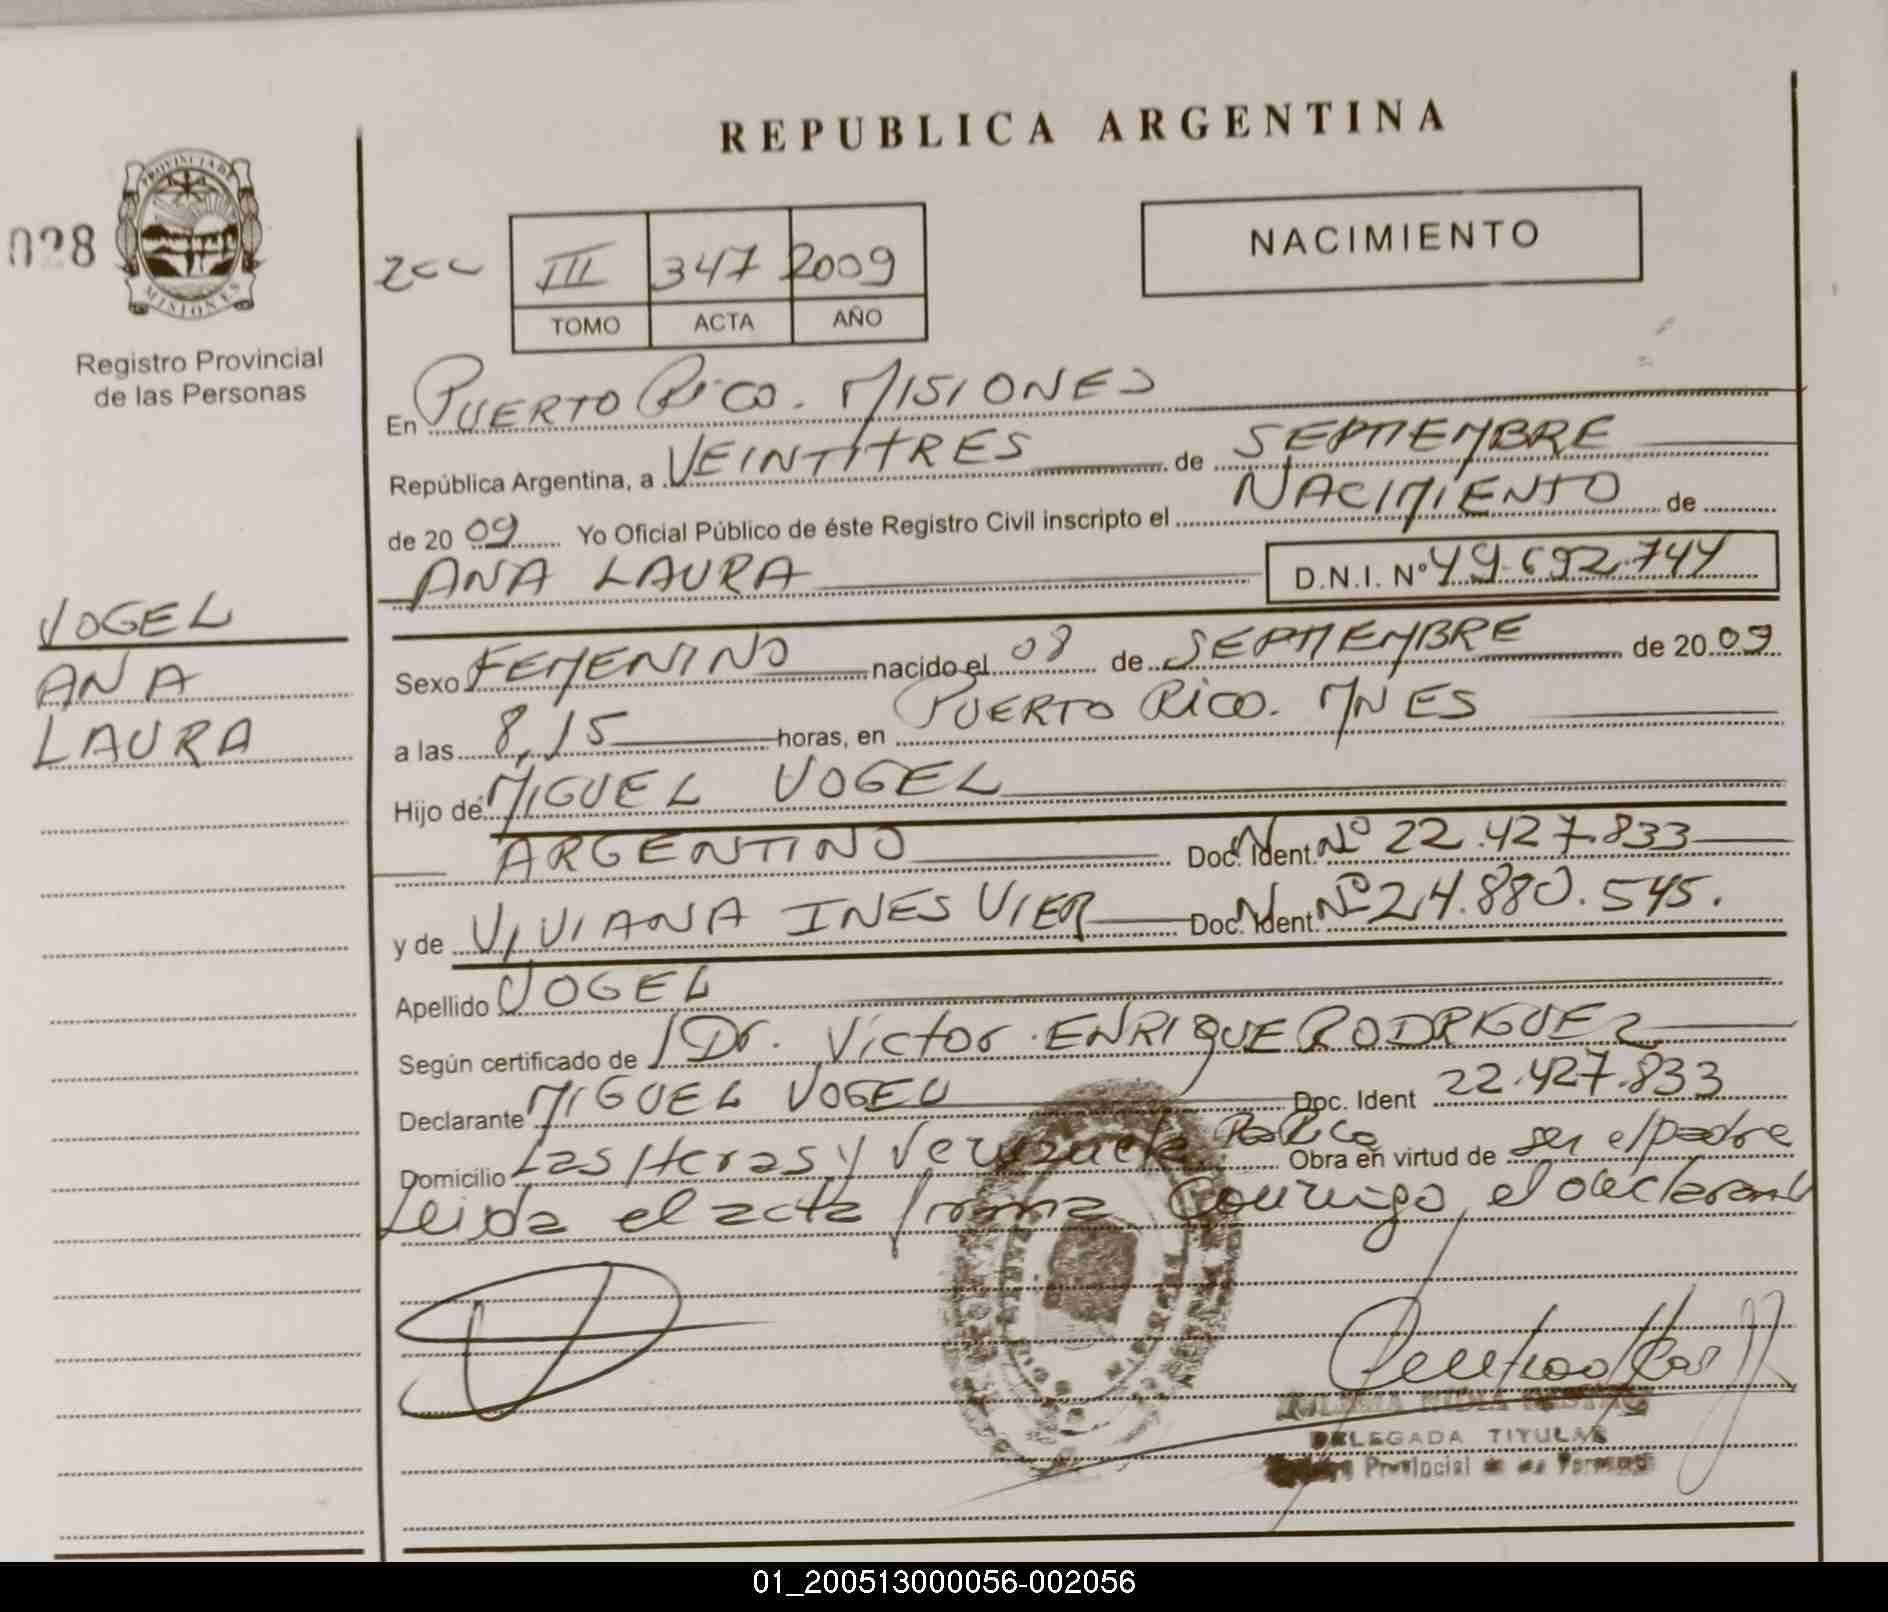 REPUBLICA ARGENTINA
PROVINCIA DE
MISIONES
028
Registro Provincial
de las Personas
NACIMIENTO
III 347 2009
TOMO ACTA AÑO
En PUERTO RICO. MISIONES
República Argentina, a VEINTITRES de SEPTIEMBRE
de 2009 Yo Oficial Público de éste Registro Civil inscripto el NACIMIENTO de
ANA LAURA D.N.I. Nº 49.692.744
VOGEL
ANA
LAURA
Sexo FEMENINO nacido el 08 de SEPTIEMBRE de 2009
a las 8,15 horas, en PUERTO RICO. MNES
Hijo de MIGUEL VOGEL
ARGENTINO Doc. Ident. Nº 22.427.833
y de VIVIANA INES VIER Doc. Ident. Nº 24.880.545.
Apellido VOGEL
Según certificado de Dr. Victor ENRIQUE RODRIGUEZ
Declarante MIGUEL VOGEL Doc. Ident 22.427.833
Domicilio Las Heras y Venezuela Pto Rico Obra en virtud de ser el padre
Leida el acta firma conmigo, el declarante
DELEGADA TITULAR
Provincial de las Personas
01_200513000056-002056